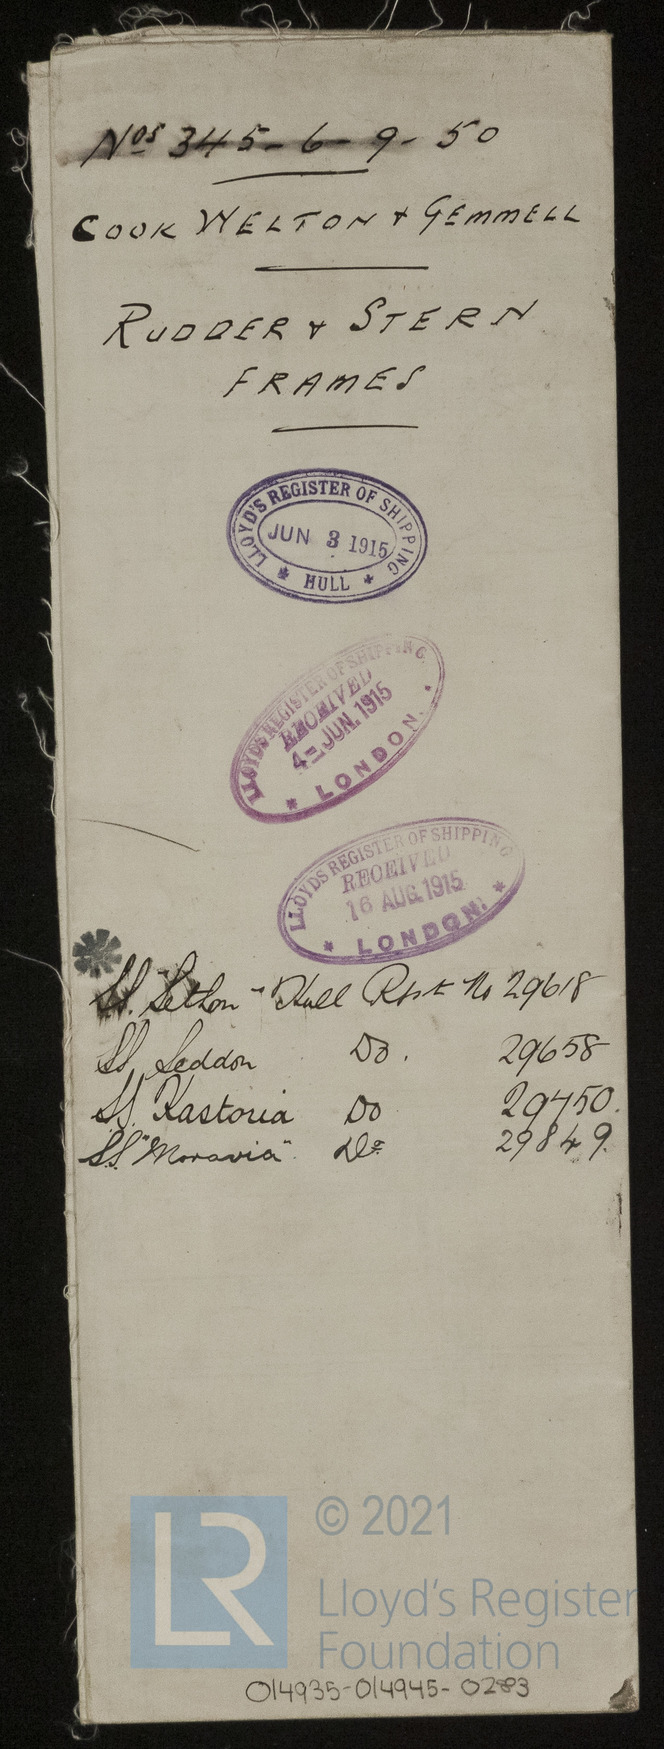 Nos 345-6-9-50
COOK WELTON & GEMMELL
RUDDER & STERN
FRAMES
LLOYD'S REGISTER OF SHIPPING
JUN 3 1915
HULL
LLOYDS REGISTER OF SHIPPING
RECEIVED
4-JUN.1915
LONDON.
LLOYDS REGISTER OF SHIPPING
RECEIVED
16 AUG.1915
LONDON.
SS. "Sethon" Hull Rpt No 29618
SS. Seddon Do. 29658
SS. Kastoria Do 29750.
SS. "Moravia" Do 29849.
LR
© 2021
Lloyd's Register
Foundation
014935-014945-0283